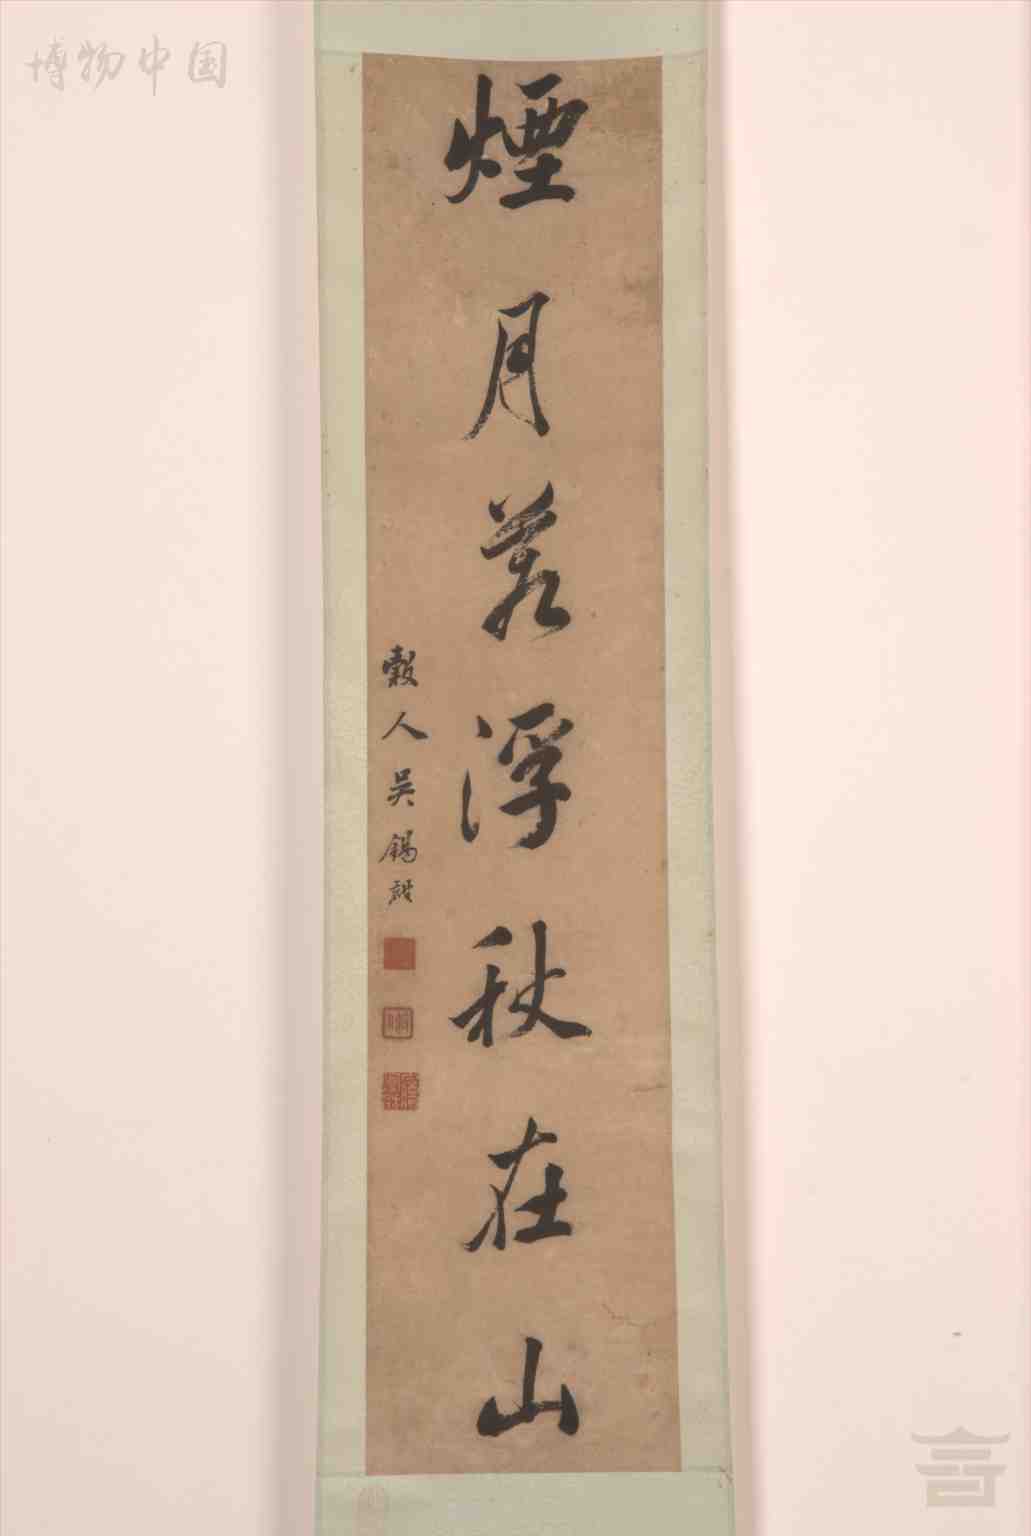 煙月若浮秋在山
穀人吳錫麒
博物中国